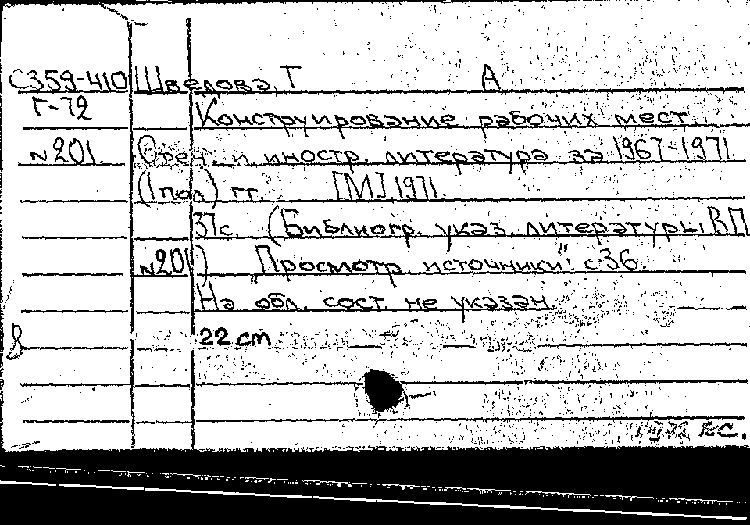 С359-410 Шведова, Т А
Г-72 Конструирование рабочих мест.
№201 Отеч. и иностр. литература за 1967-1971
(I пол.) гг. [М.] 1971.
37с. (Библиогр. указ. литературы ВП
№201) "Просмотр. источники": с 36.
На обл. сост. не указан.
22 cm